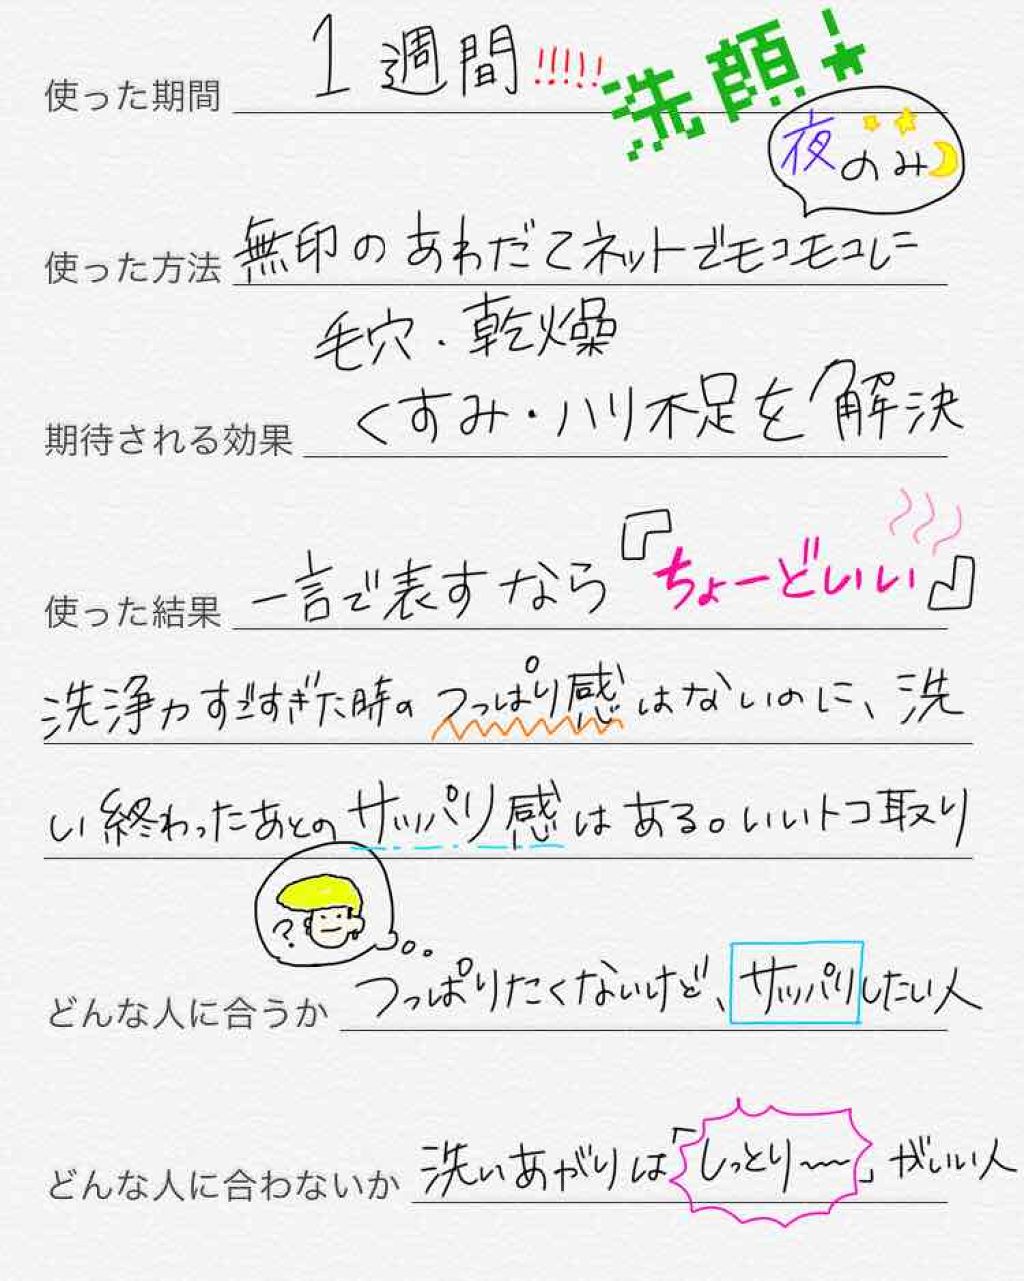 使った期間 1週間!!!!!
洗顔!
夜のみ
使った方法 無印のあわだてネットでモコモコに
毛穴・乾燥
期待される効果 くすみ・ハリ不足を解決
使った結果 一言で表すなら『ちょーどいい』
洗浄力すごすぎた時のつっぱり感はないのに、洗
い終わったあとのサッパリ感はある。いいトコ取り
?
どんな人に合うか つっぱりたくないけど、サッパリしたい人
どんな人に合わないか 洗いあがりは「しっとり〜〜」がいい人